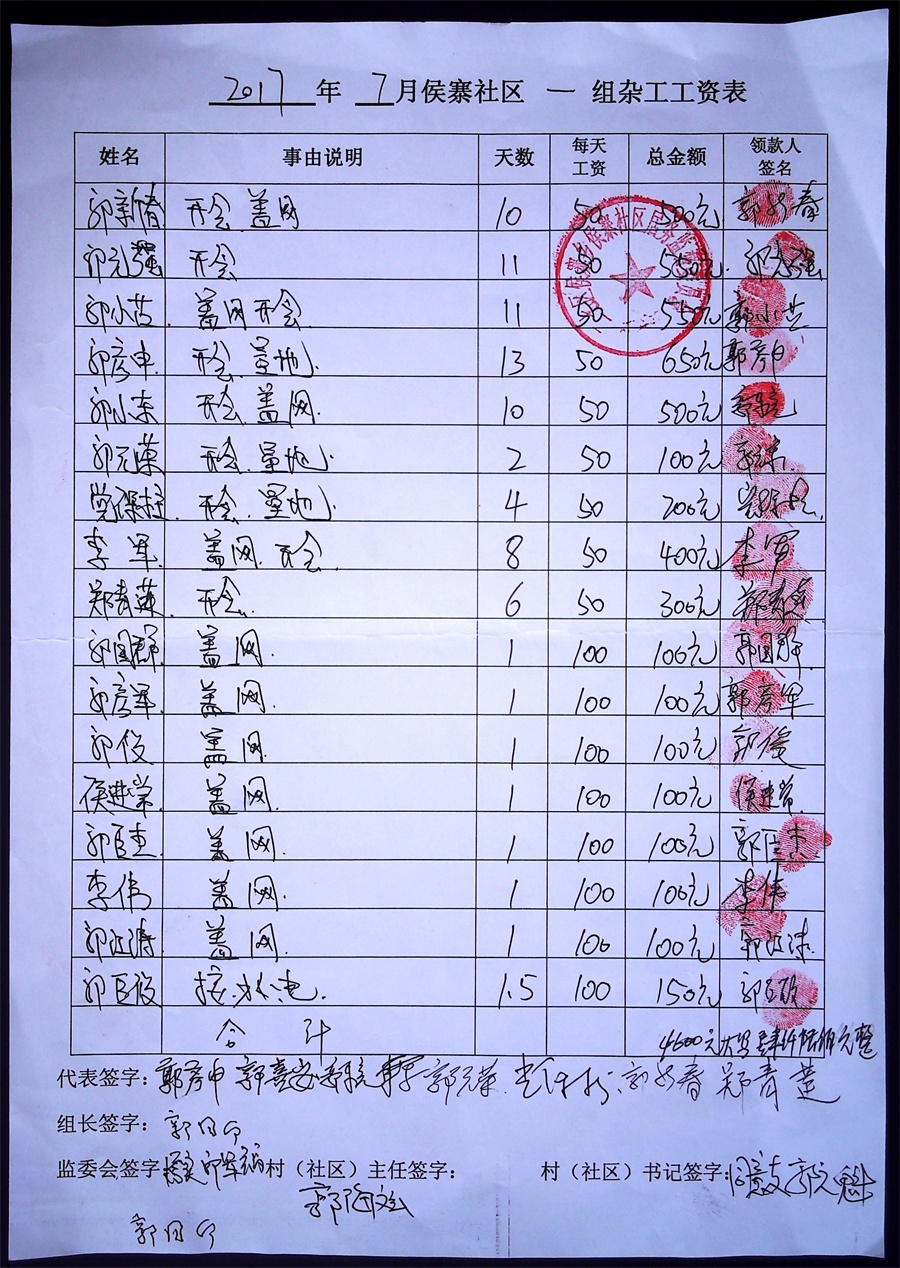 2017年 7月侯寨社区 一 组杂工工资表
姓名 事由说明 天数 每天工资 总金额 领款人签名
郭新春 开会 盖网 10 50 500元 郭新春
开会 11 50 550元
郭小芸 盖网 开会 11 50 550元 郭小芸
郭彦申 开会 量地 13 50 650元 郭彦申
郭小东 开会 盖网 10 50 500元
郭元荣 开会 量地 2 50 100元
党保拴 开会 量地 4 50 200元
李军 盖网 开会 8 50 400元 李军
郑青莲 开会 6 50 300元 郑青莲
郭国群 盖网 1 100 100元 郭国群
郭彦军 盖网 1 100 100元 郭彦军
郭俊 盖网 1 100 100元 郭俊
侯进荣 盖网 1 100 100元 侯进荣
郭臣杰 盖网 1 100 100元 郭臣杰
李伟 盖网 1 100 100元 李伟
郭江涛 盖网 1 100 100元 郭江涛
郭臣俊 接水电 1.5 100 150元
合计 4600元 大写肆仟陆佰元整
代表签字: 郭彦申 郭元荣 郭新春 郑青莲
组长签字:
监委会签字 村（社区）主任签字: 村（社区）书记签字: